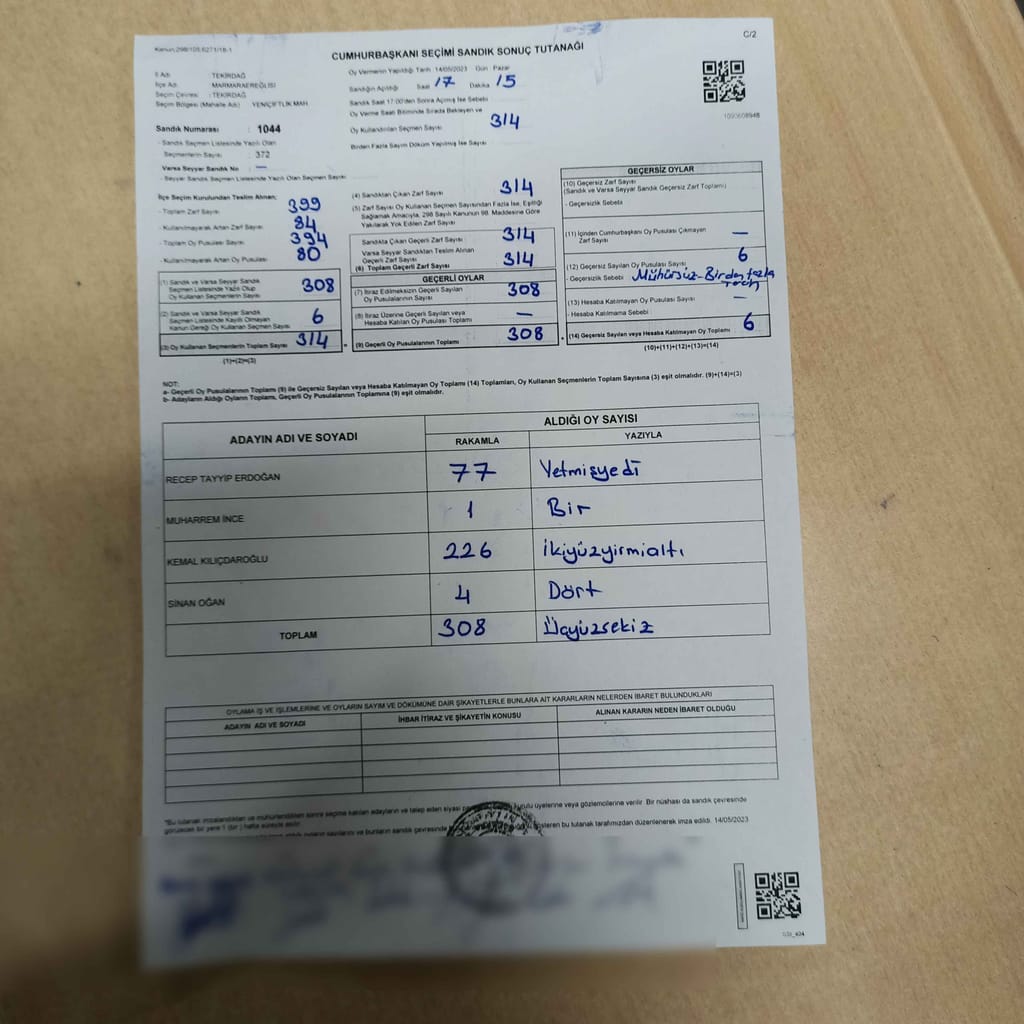 C/2
Kanun:298/105,6271/18-1
CUMHURBAŞKANI SEÇİMİ SANDIK SONUÇ TUTANAĞI
İl Adı : TEKİRDAĞ
İlçe Adı : MARMARAEREĞLİSİ
Seçim Çevresi : TEKİRDAĞ
Seçim Bölgesi (Mahalle Adı) : YENİÇİFTLİK MAH
Oy Vermenin Yapıldığı Tarih :14/05/2023 Gün : Pazar
Sandığın Açıldığı Saat 17 Dakika 15
Sandık Saat 17:00'den Sonra Açılmış İse Sebebi
Oy Verme Saati Bitiminde Sırada Bekleyen ve
Oy Kullandırılan Seçmen Sayısı 314
Birden Fazla Sayım Döküm Yapılmış İse Sayısı
Sandık Numarası : 1044
- Sandık Seçmen Listesinde Yazılı Olan
Seçmenlerin Sayısı : 372
Varsa Seyyar Sandık No : —
- Seyyar Sandık Seçmen Listesinde Yazılı Olan Seçmen Sayısı
İlçe Seçim Kurulundan Teslim Alınan;
- Toplam Zarf Sayısı 399
- Kullanılmayarak Artan Zarf Sayısı 84
- Toplam Oy Pusulası Sayısı 394
- Kullanılmayarak Artan Oy Pusulası Sayısı 80
(1) Sandık ve Varsa Seyyar Sandık
Seçmen Listesinde Yazılı Olup
Oy Kullanan Seçmenlerin Sayısı 308
(2) Sandık ve Varsa Seyyar Sandık
Seçmen Listesinde Kayıtlı Olmayan
Kanun Gereği Oy Kullanan Seçmen Sayısı 6
(3) Oy Kullanan Seçmenlerin Toplam Sayısı 314
(1)+(2)=(3)
(4) Sandıktan Çıkan Zarf Sayısı 314
(5) Zarf Sayısı Oy Kullanan Seçmen Sayısından Fazla İse, Eşitliği
Sağlamak Amacıyla, 298 Sayılı Kanunun 98. Maddesine Göre
Yakılarak Yok Edilen Zarf Sayısı
Sandıkta Çıkan Geçerli Zarf Sayısı 314
Varsa Seyyar Sandıktan Teslim Alınan
Geçerli Zarf Sayısı
(6) Toplam Geçerli Zarf Sayısı 314
GEÇERLİ OYLAR
(7) İtiraz Edilmeksizin Geçerli Sayılan
Oy Pusulalarının Sayısı 308
(8) İtiraz Üzerine Geçerli Sayılan veya
Hesaba Katılan Oy Pusulası Toplamı —
(9) Geçerli Oy Pusulalarının Toplamı 308
GEÇERSİZ OYLAR
(10) Geçersiz Zarf Sayısı
(Sandık ve Varsa Seyyar Sandık Geçersiz Zarf Toplamı)
- Geçersizlik Sebebi
(11) İçinden Cumhurbaşkanı Oy Pusulası Çıkmayan
Zarf Sayısı —
(12) Geçersiz Sayılan Oy Pusulası Sayısı 6
- Geçersizlik Sebebi Mühürsüz-Birden fazla
(13) Hesaba Katılmayan Oy Pusulası Sayısı —
- Hesaba Katılmama Sebebi
(14) Geçersiz Sayılan veya Hesaba Katılmayan Oy Toplamı 6
(10)+(11)+(12)+(13)=(14)
NOT:
a- Geçerli Oy Pusulalarının Toplamı (9) ile Geçersiz Sayılan veya Hesaba Katılmayan Oy Toplamı (14) Toplamları, Oy Kullanan Seçmenlerin Toplam Sayısına (3) eşit olmalıdır. (9)+(14)=(3)
b- Adayların Aldığı Oyların Toplamı, Geçerli Oy Pusulalarının Toplamına (9) eşit olmalıdır.
ADAYIN ADI VE SOYADI ALDIĞI OY SAYISI
RAKAMLA YAZIYLA
RECEP TAYYİP ERDOĞAN 77 Yetmişyedi
MUHARREM İNCE 1 Bir
KEMAL KILIÇDAROĞLU 226 İkiyüzyirmialtı
SİNAN OĞAN 4 Dört
TOPLAM 308 Üçyüzsekiz
OYLAMA İŞ VE İŞLEMLERİNE VE OYLARIN SAYIM VE DÖKÜMÜNE DAİR ŞİKAYETLERLE BUNLARA AİT KARARLARIN NELERDEN İBARET BULUNDUKLARI
ADAYIN ADI VE SOYADI İHBAR İTİRAZ VE ŞİKAYETİN KONUSU ALINAN KARARIN NEDEN İBARET OLDUĞU
*Bu tutanak imzalandıktan ve mühürlendikten sonra seçime katılan adayların ve talep eden siyasi kurulu üyelerine veya gözlemcilerine verilir. Bir nüshası da sandık çevresinde
görülecek bir yere 1 (bir) hafta süreyle asılır.
gösteren bu tutanak tarafımızdan düzenlenerek imza edildi. 14/05/2023